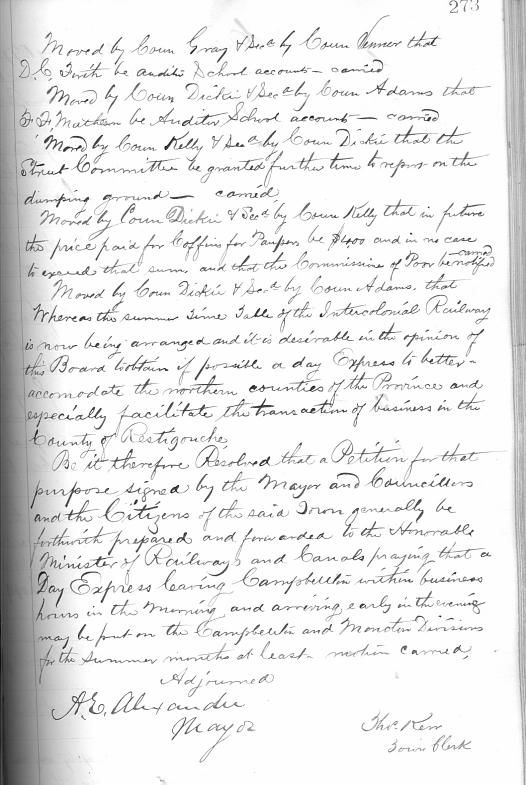 273
Moved by Coun Gray & Secd by Coun Venner that
D.C. Firth be auditor School accounts – carried
Moved by Coun Dickie & Secd by Coun Adams that
F. F. Matheson be Auditor School accounts – carried
Moved by Coun Kelly & Secd by Coun Dickie that the
Street Committee be granted further time to report on the
dumping ground – carried,
Moved by Coun Dickie & Secd by Coun Kelly that in future
the price paid for Coffins for Paupers be $4.00 and in no case
to exceed that sum, and that the Commissine of Poor be notified carried
Moved by Coun Dickie & Secd by Coun Adams, that
Whereas the summer Time Table of the Intercolonial Railway
is now being arranged and it is desirable in the opinion of
this Board to obtain if possible a day Express to better
accomodate the northern counties of the Province and
especially facilitate the transaction of business in the
County of Restigouche
Be it therefore Resolved that a Petition for that
purpose signed by the Mayor and Councillors
and the Citizens of the said Town generally be
forthwith prepared and forwarded to the Honorable
Minister of Railways and Canals praying that a
Day Express leaving Campbellton within business
hours in the Morning and arriving early in the evening
may be put on the Campbellton and Moncton Divisions
for the Summer months at least – motion carried,
Adjourned
A.E. Alexander
Mayor
Thos. Kerr
Town Clerk